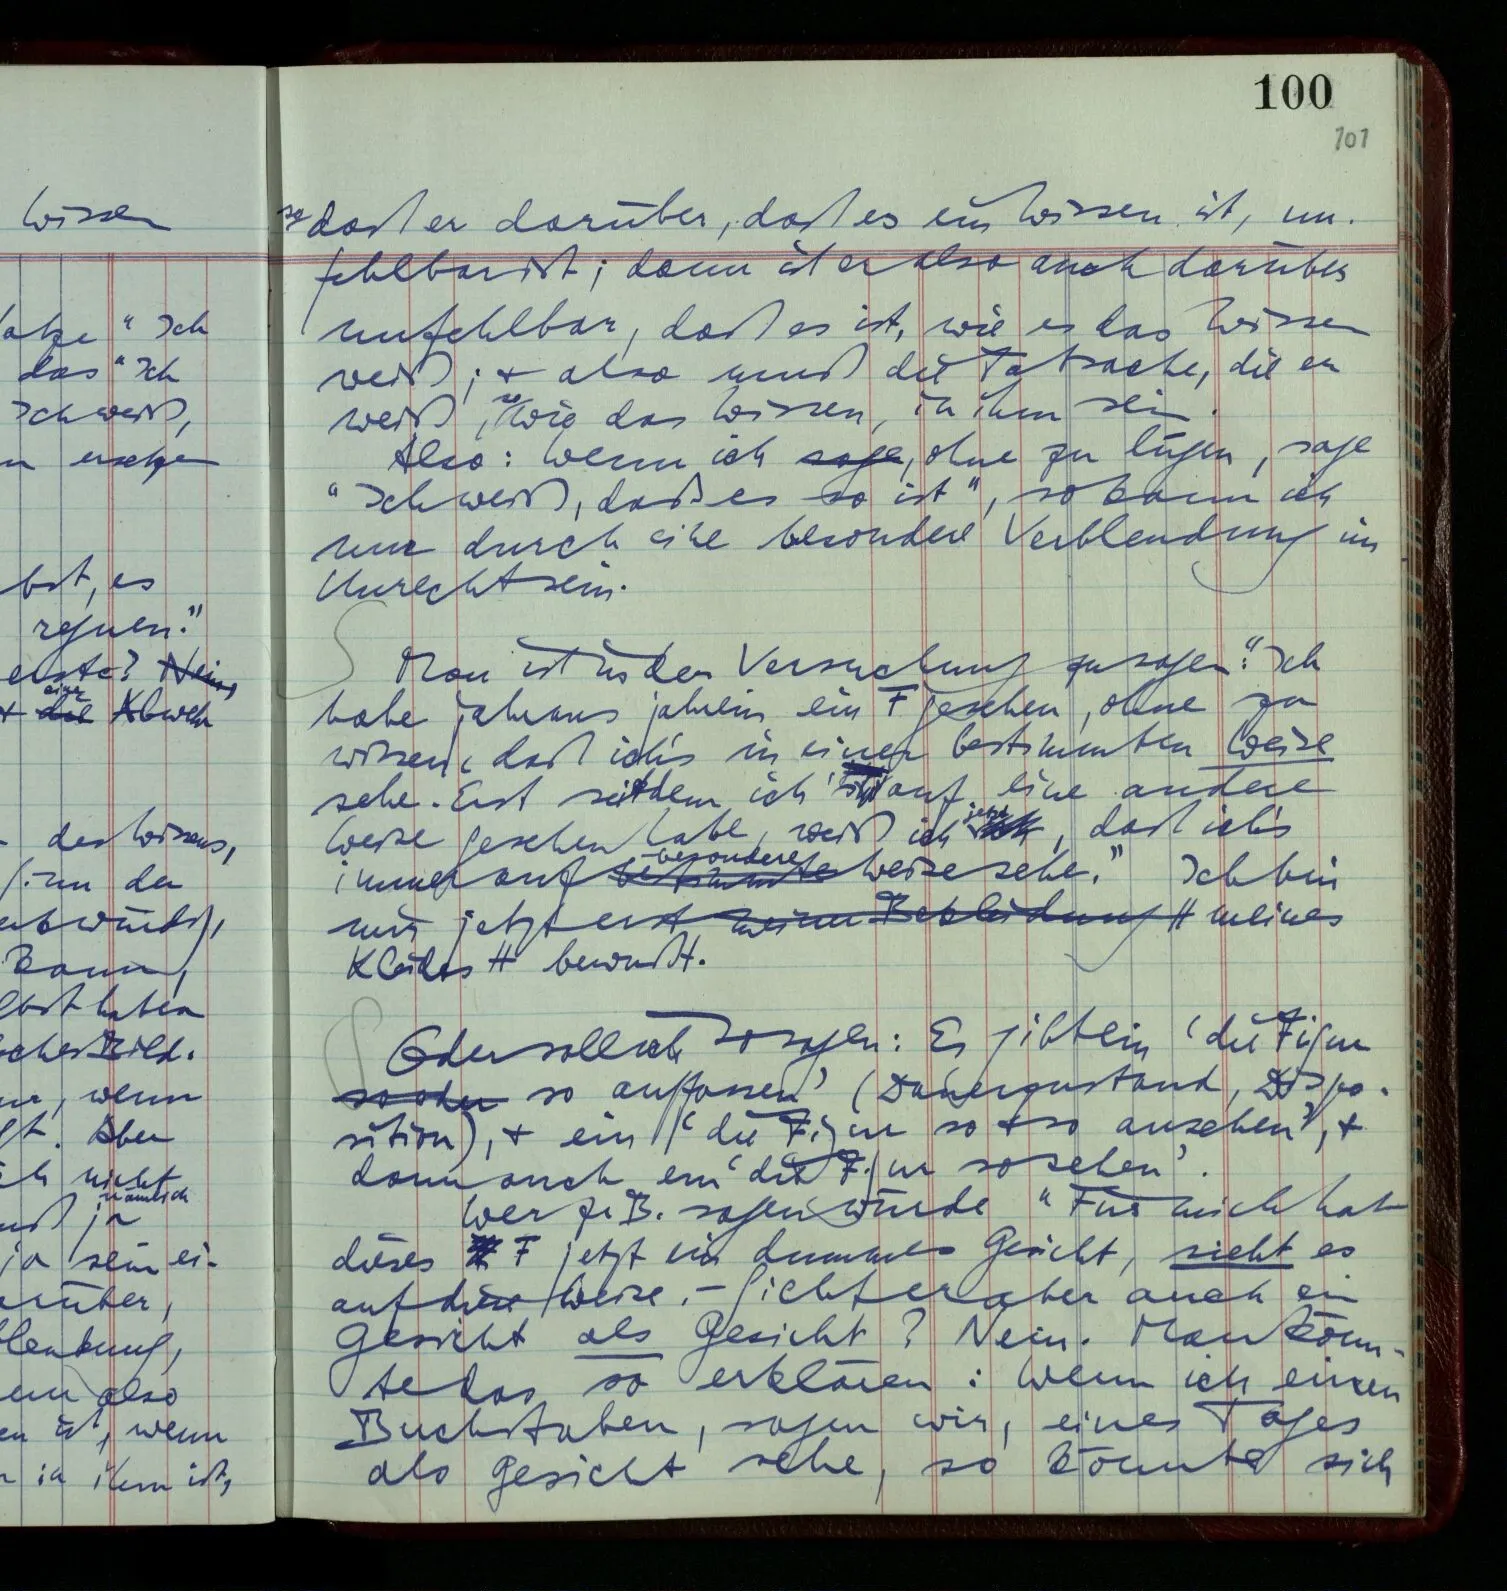 Wissen
atze "Ich
das "Ich
Ich weiß,
n ersetzen
bst, es
regnen."
erste? Nein,
+ die eine Abwehr
des Wissens,
kann,
lbst haben
sches Bild.
wenn
Aber
ich nicht
nämlich
ja
ja sein ei-
arüber,
also
ist, wenn
in ihm ist,
100
101
so daß er darüber, daß es ein Wissen ist, un-
fehlbar ist; dann ist er also auch darüber
unfehlbar, daß es ist, wie es das Wissen
weiß; + also muß die Tatsache, die er
weiß, so wie das Wissen, in ihm sein.
Also: Wenn ich sage, ohne zu lügen, sage
"Ich weiß, daß es so ist", so kann ich
nur durch eine besondere Verblendung im
Unrecht sein.
Man ist in der Versuchung zu sagen: "Ich
habe jahraus jahrein ein F gesehen, ohne zu
wissen, daß ich's in einer bestimmten Weise
sehe. Erst seitdem ich auf eine andere
Weise gesehen habe, weiß ich jetzt, daß ich's
immer auf bestimmte besondere Weise sehe." Ich bin
mir jetzt erst meiner Bekleidung // meines
Kleides // bewußt.
Oder soll ich so sagen: Es gibt ein 'die Figur
so oder so auffassen' (Dauerzustand, Dispo-
sition), + ein 'die Figur so + so ansehen', +
dann auch ein 'die Figur so sehen'.
Wer z.B. sagen würde "Für mich hat
dieses F jetzt ein dummes Gesicht, sieht es
auf diese Weise. – Sieht er aber auch ein
Gesicht als Gesicht? Nein. Man könn-
te das so erklären: Wenn ich einen
Buchstaben, sagen wir, eines Tages
als Gesicht sehe, so könnte sich